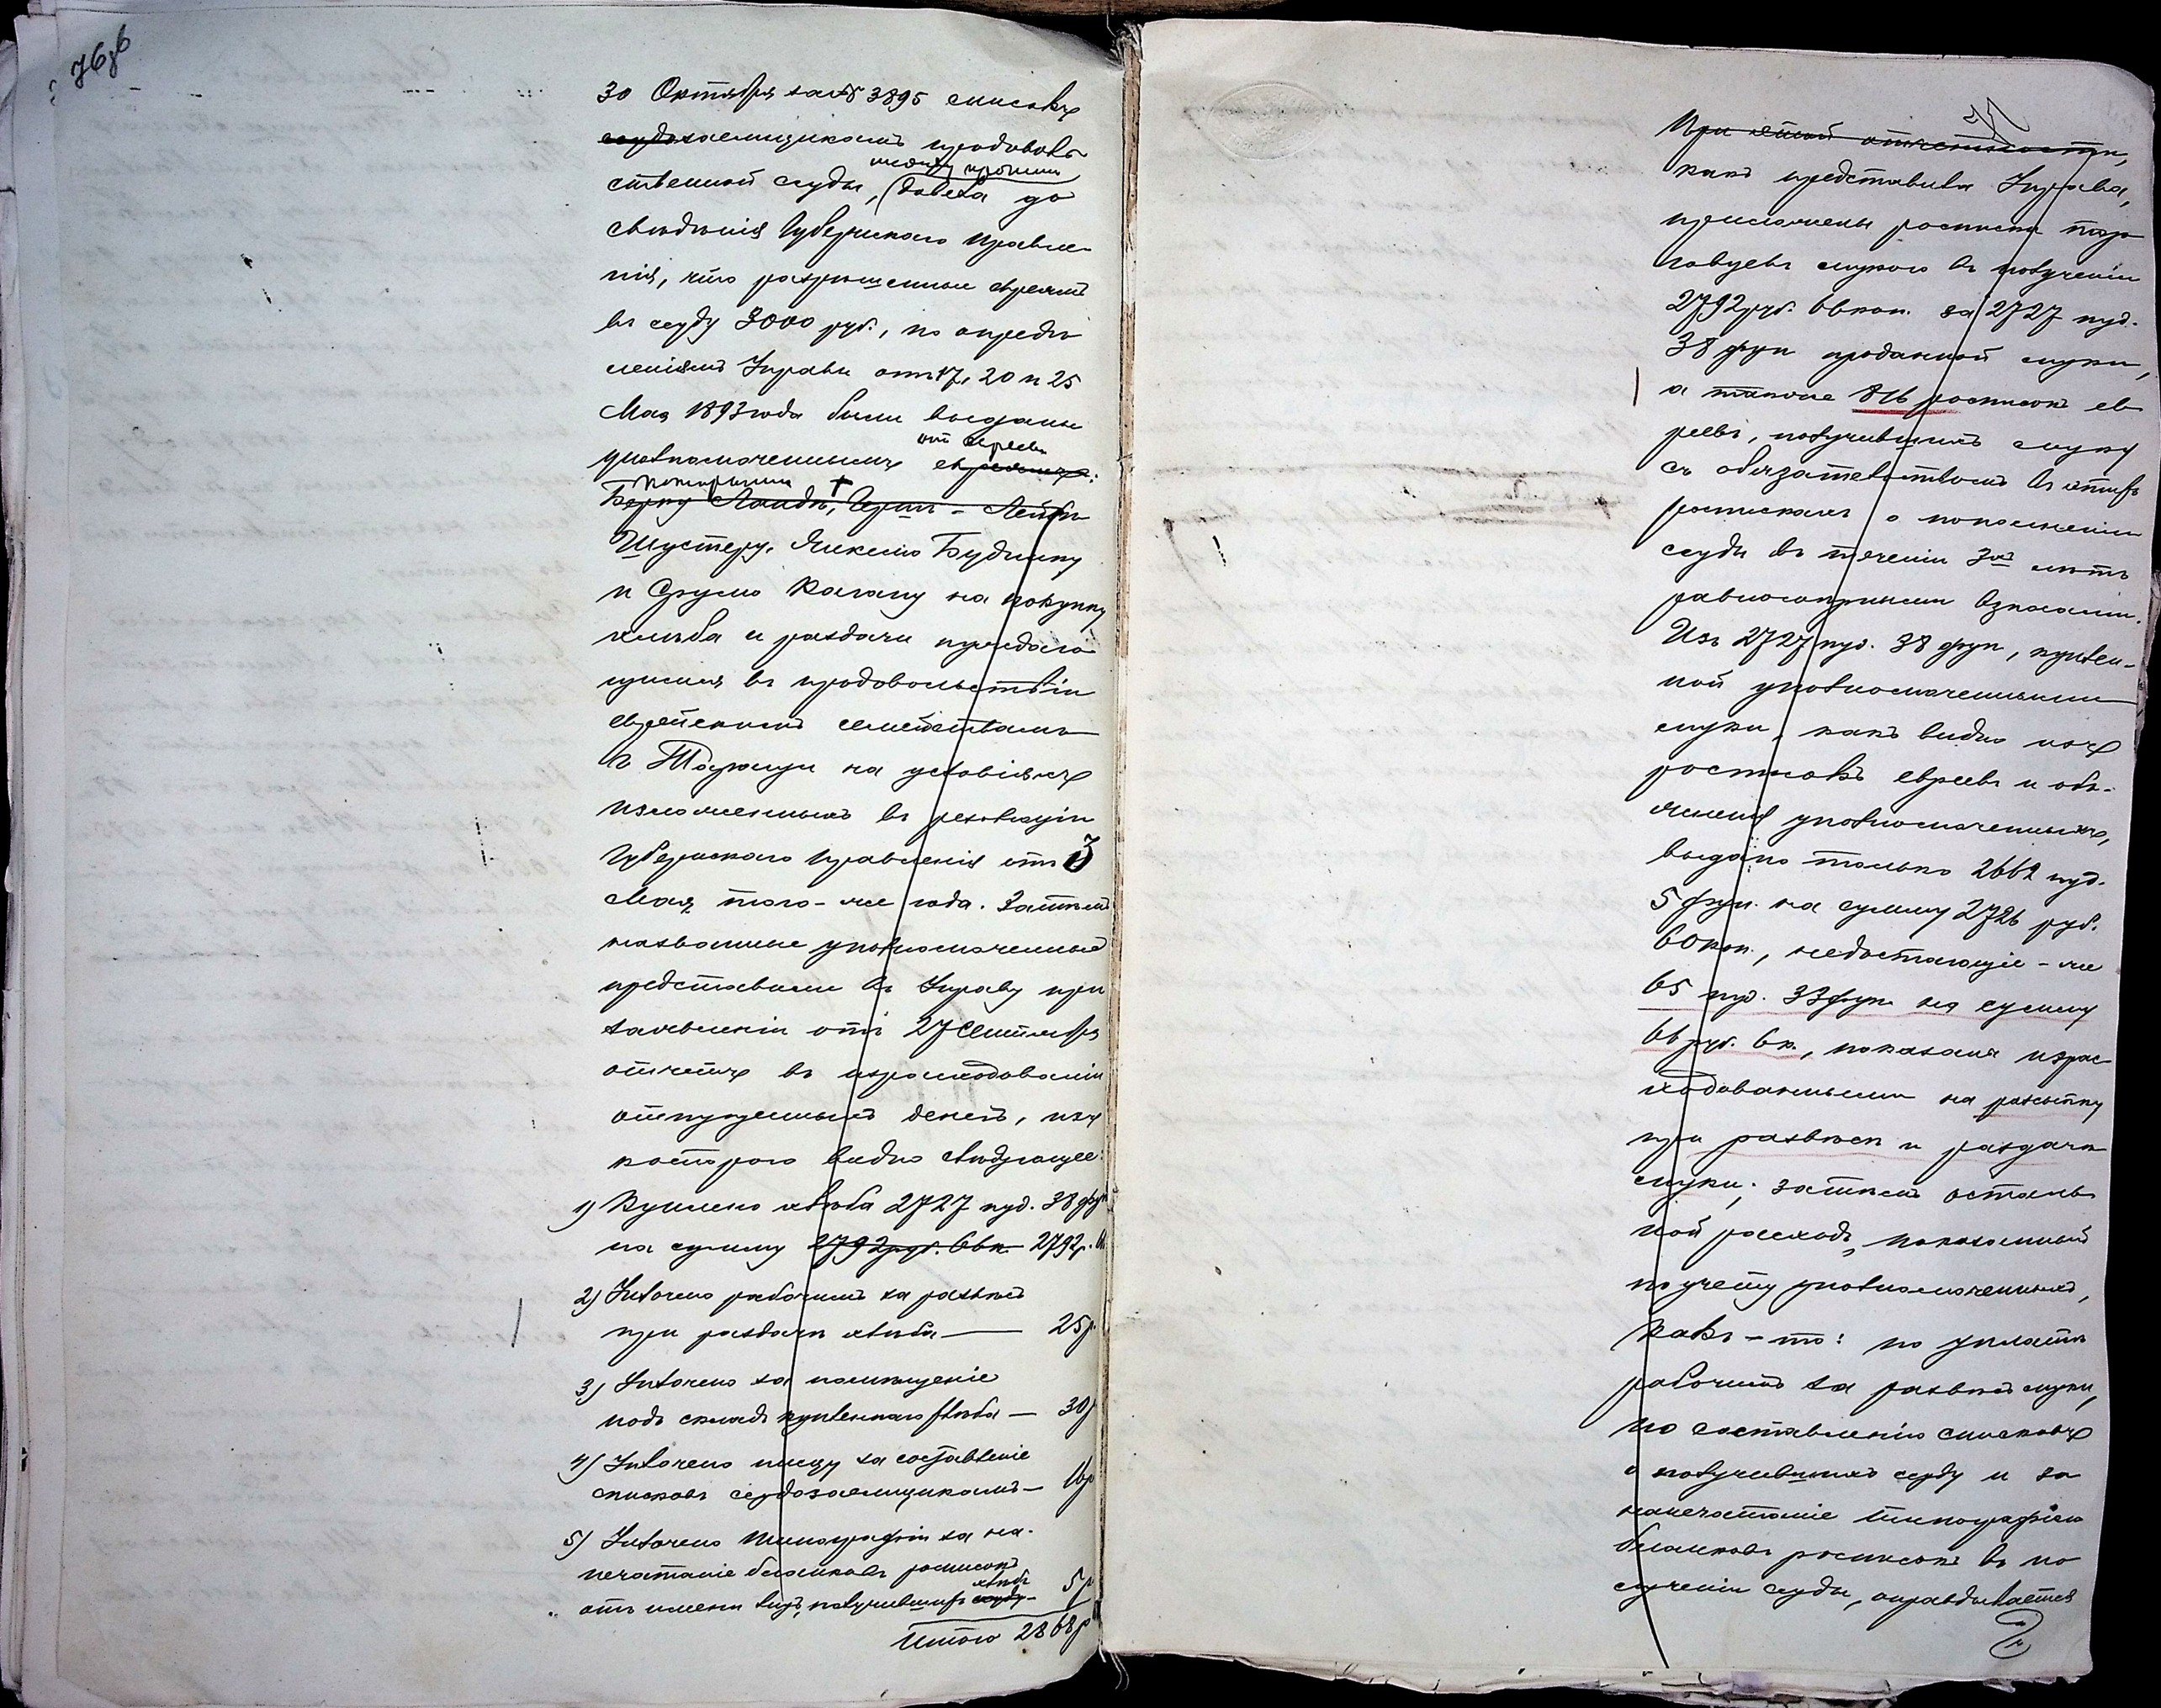 76об
30 Октября за № 3895 списокъ
ссудозаемщикамъ продоволь
между прочимъ
ственной ссуды, довела до
свѣдѣнія Губернскаго Правле-
нія, что разрѣшенные евреямъ
въ ссуду 3000 руб., по опредѣ
леніямъ Управы отъ 17, 20 и 25
Мая 1893 года были выданы
отъ евреевъ
уполномоченнымъ
Берку Ланда, Герш-Лейбѣ
Шустеру, Янкелю Будницу
и Срулю Кагану на покупку
хлѣба и раздачи нуждаю
щимся въ продовольствіи
еврейскимъ семействамъ
въ на условіяхъ
изложенныхъ въ резолюціи
Губернскаго Правленія отъ 3
Мая того-же года. Затѣмъ
названные уполномоченные
представили въ Управу при
заявленіи отъ 27 Сентября
отчетъ въ израсходованіи
отпущенныхъ денегъ, изъ
котораго видно слѣдующее:
1) Куплено хлѣба 2727 пуд. 38 фун
на сумму 2792 руб. 66 к. 2792 р.
2) Уплочено рабочимъ за развѣсъ
при раздачѣ хлѣба — 25 р
3) Уплочено за помѣщеніе
подъ складъ купленнаго хлѣба — 30 р
4) Уплочено писцу за составленіе
списковъ ссудозаемщикамъ — 16 р
5) Уплочено Типографіи за на-
печатаніе бланковъ росписокъ
хлѣбъ
отъ имени лицъ, получившихъ ссуду — 5 р
Итого 2868 р
77
При этой отчетности,
какъ представила Управа,
приложены росписки тор
говцевъ мукою въ полученіи
2792 руб. 66 коп. за 2727 пуд.
38 фун проданной муки,
а также 816 росписокъ ев
реевъ, получившихъ муку
съ обязательствомъ въ этихъ
роспискахъ о пополненіи
ссуды въ теченіи 3хъ лѣтъ
равносрочными взносами.
Изъ 2727 пуд. 38 фун, куплен-
ной уполномоченными
муки, какъ видно изъ
росписокъ евреевъ и объ-
ясненія уполномоченныхъ,
выдано только 2662 пуд.
5 фун. на сумму 2726 руб.
60 коп., недостающіе-же
65 пуд. 33 фун на сумму
66 руб. 6 к., показаны израс
ходованными на разсыпку
при развѣсѣ и раздачѣ
муки; затѣмъ осталь
ной расходъ, показанный
по учету уполномоченныхъ,
какъ-то: по уплатѣ
рабочимъ за развѣсъ муки,
по составленію списковъ
о получившихъ ссуду и за
напечатаніе типографіею
бланковъ росписокъ въ по
лученіи ссуды, оправдывается